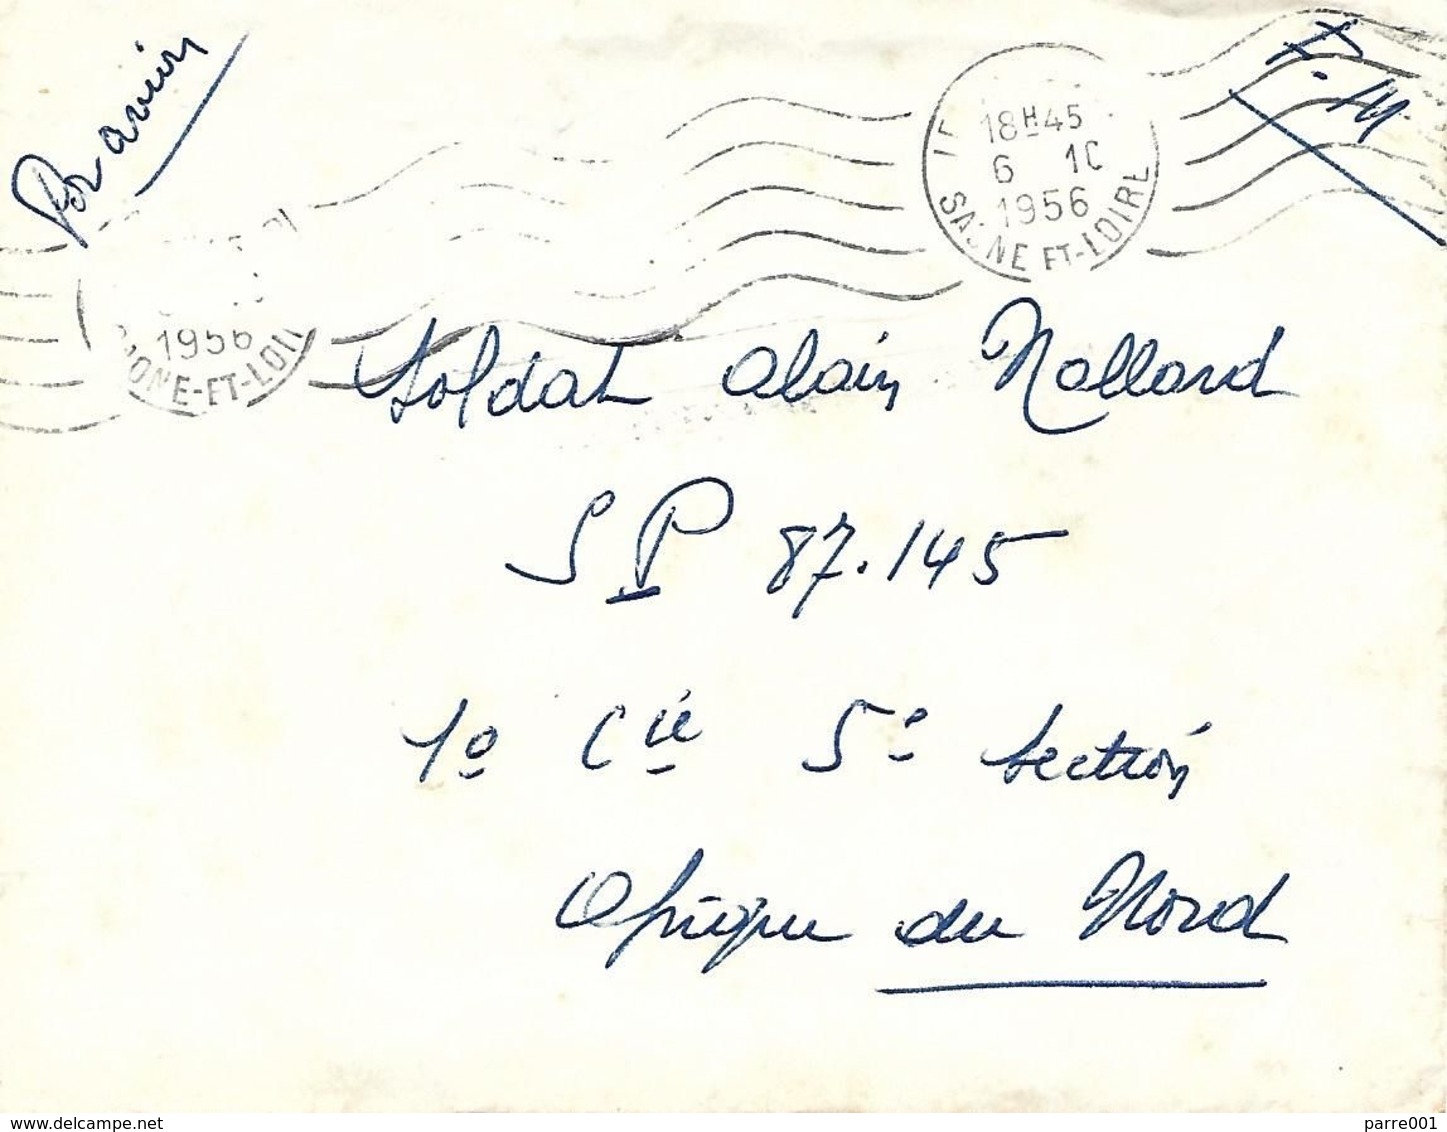 Par avion
F.M
18H45
6 10
1956
SAONE ET-LOIRE
1956
SAONE-ET-LOIRE
Soldat Alain Nallard
SP 87.145
1º Cie 5e Section
Afrique du Nord
delcampe.net
parre001